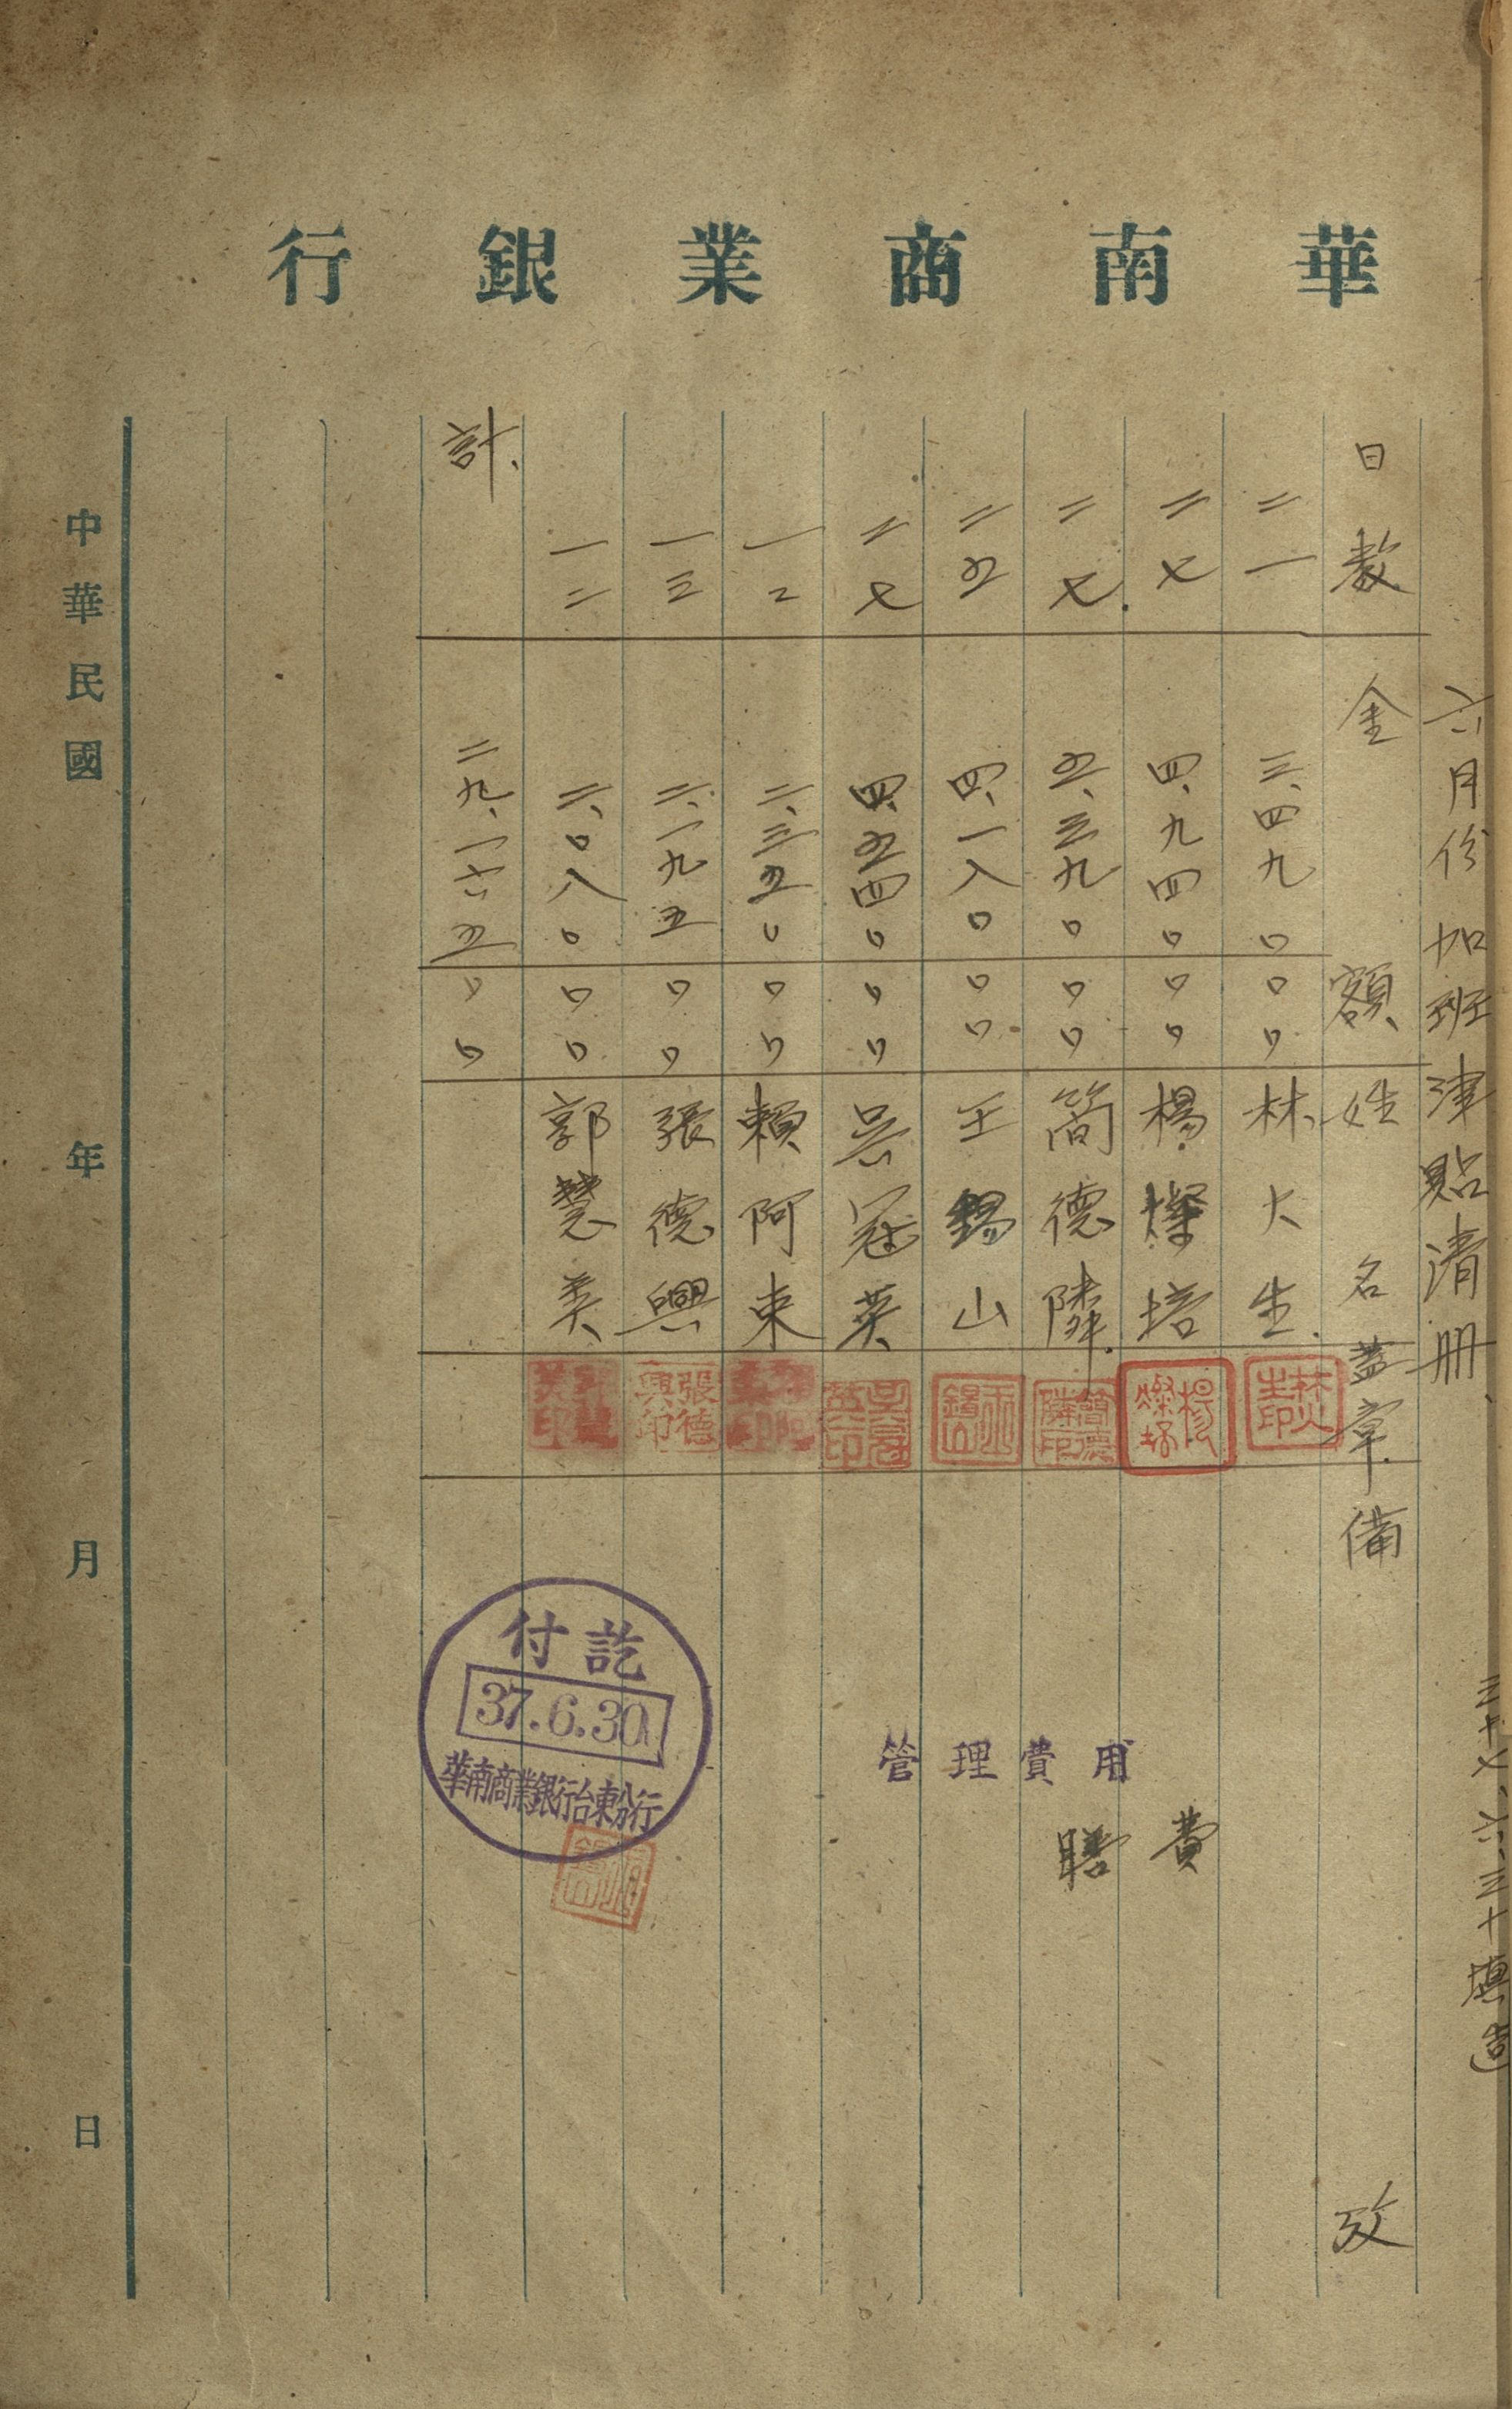 華南商業銀行
六月份加班津貼清册
三十七、六、三十填造
日數 金額 姓名 蓋章 備攷
二一 三、四九〇〇〇 林大生 林大生印
二七 四、九四〇〇〇 楊燦培 楊燦培
二七 五、三九〇〇〇 簡德隣 簡德隣印
二五 四、一八〇〇〇 王錫山 王錫山
二七 四、五四〇〇〇 吳冠英 吳冠英印
一二 二、三五〇〇〇 賴阿東
一三 二、一九五〇〇 張德興 張德興印
一二 二、〇八〇〇〇 郭慧美
計 二九、一六五〇〇
管理費用
膳費
付訖
37.6.30
華南商業銀行台東分行
中華民國 年 月 日